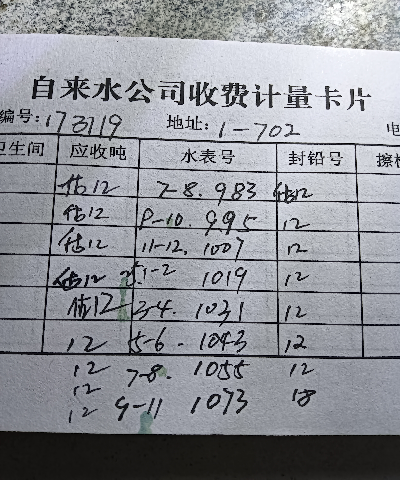 自来水公司收费计量卡片
编号:173719 地址: 1-702 电
卫生间 应收吨 水表号 封铅号 擦
估12 7-8. 983 估12
估12 8-10. 995 12
估12 11-12. 1007 12
估12 25.1-2 1019 12
估12 3-4. 1031 12
12 5-6. 1043 12
12 7-8. 1055 12
12
12 9-11 1073 18